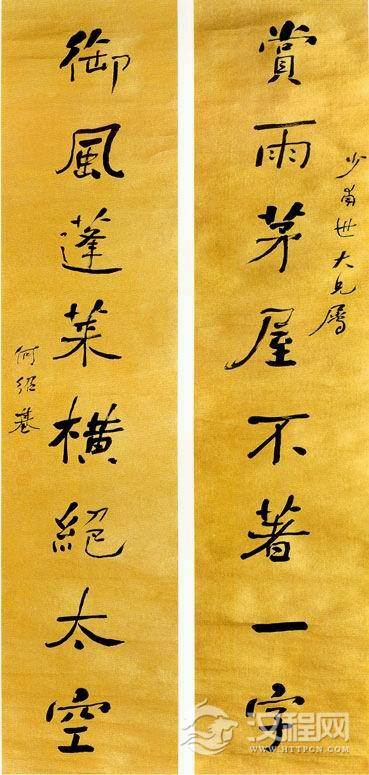 少甫世大兄屬
賞雨茅屋不著一字
御風蓬萊橫絕太空
何紹基
汉程网
WWW.HTTPCN.COM